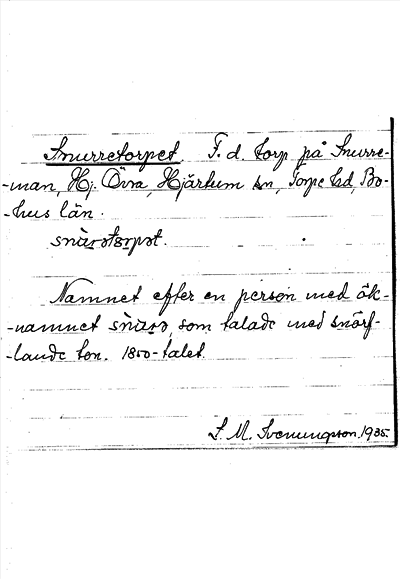 Snurretorpet. F. d. torp på Snurre-
-man, Hj. Övra, Hjärtum sn, Torpe hd, Bo-
-hus län.
Namnet efter en person med ök-
-namnet som talade med snörf-
-lande ton. 1800-talet.
S. M. Svenungsson, 1935.